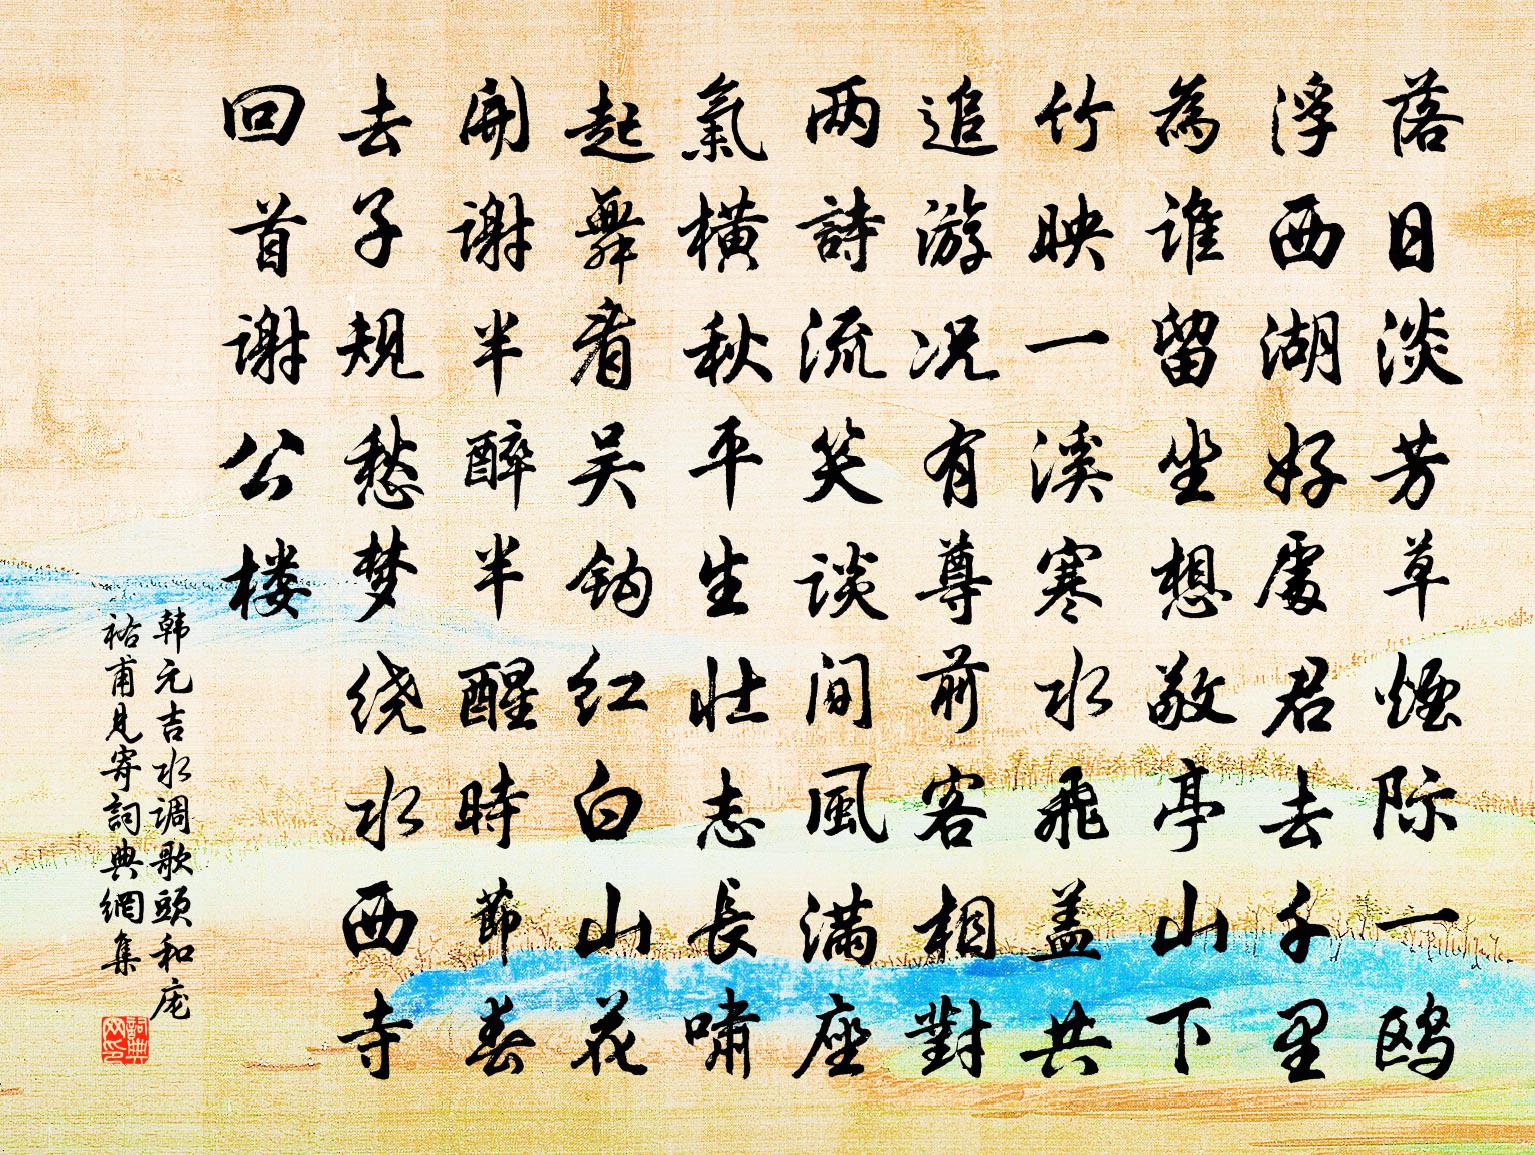 落日淡芳草煙际一鸥
浮西湖好處君去千里
為谁留坐想敬亭山下
竹映一溪寒水飛盖共
追游况有尊前客相對
两詩流笑谈间風满座
氣横秋平生壮志長嘯
起舞看吴鈎红白山花
開谢半醉半醒時節春
去子规愁梦绕水西寺
回首谢公楼
韩元吉水调歌頭和庞
祐甫見寄詞典網集
詞典網印